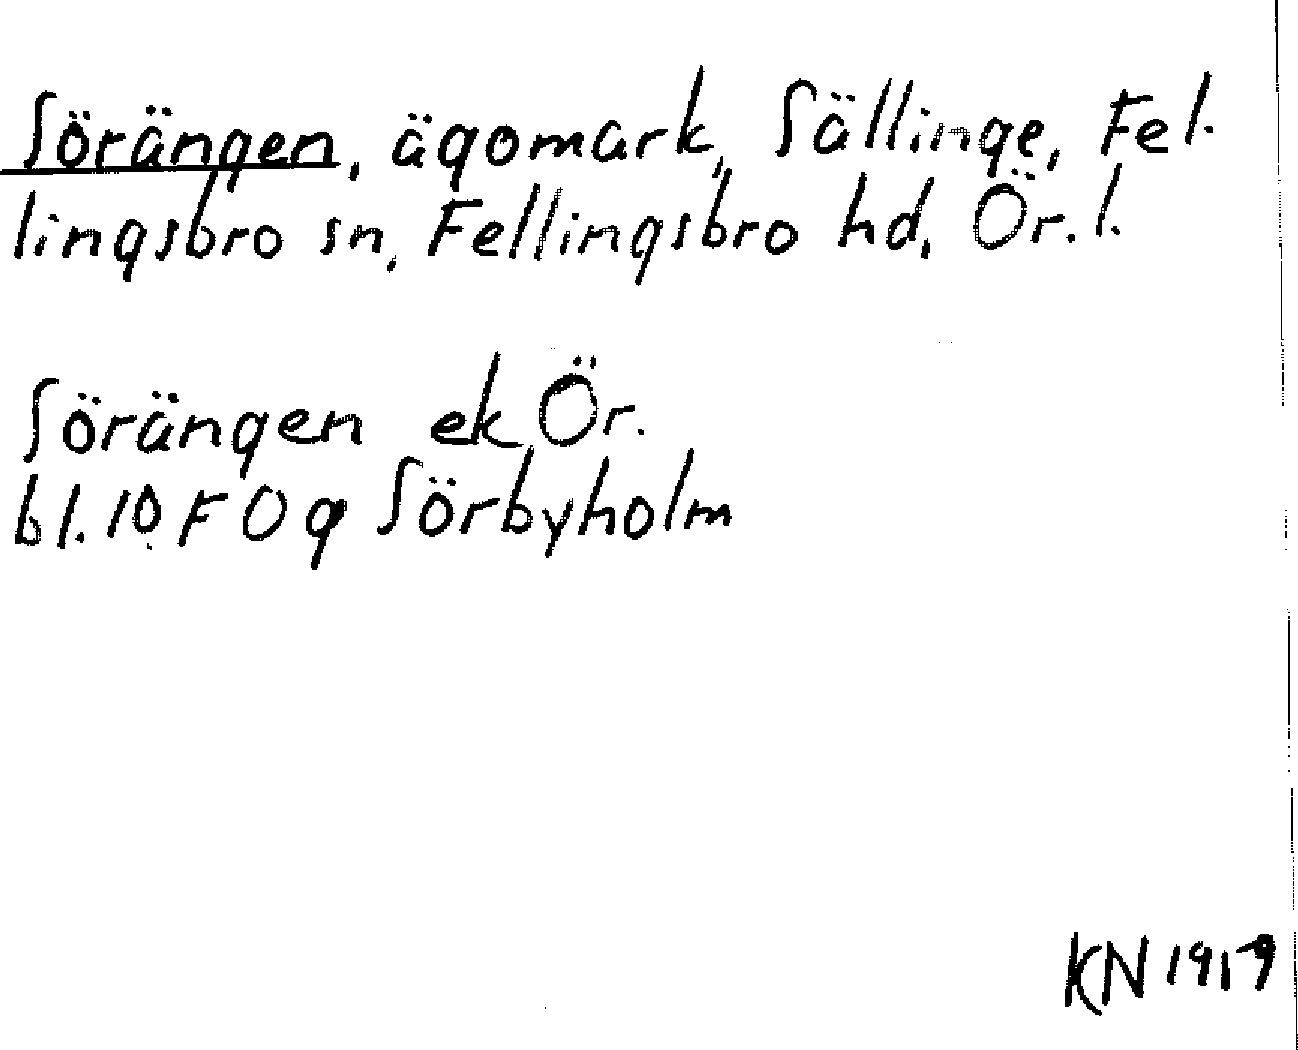 Sörängen, ägomark, Sällinge, Fel-
lingsbro sn, Fellingsbro hd, Ör. l.
Sörängen ek Ör.
bl. 10 F 0 g Sörbyholm
KN